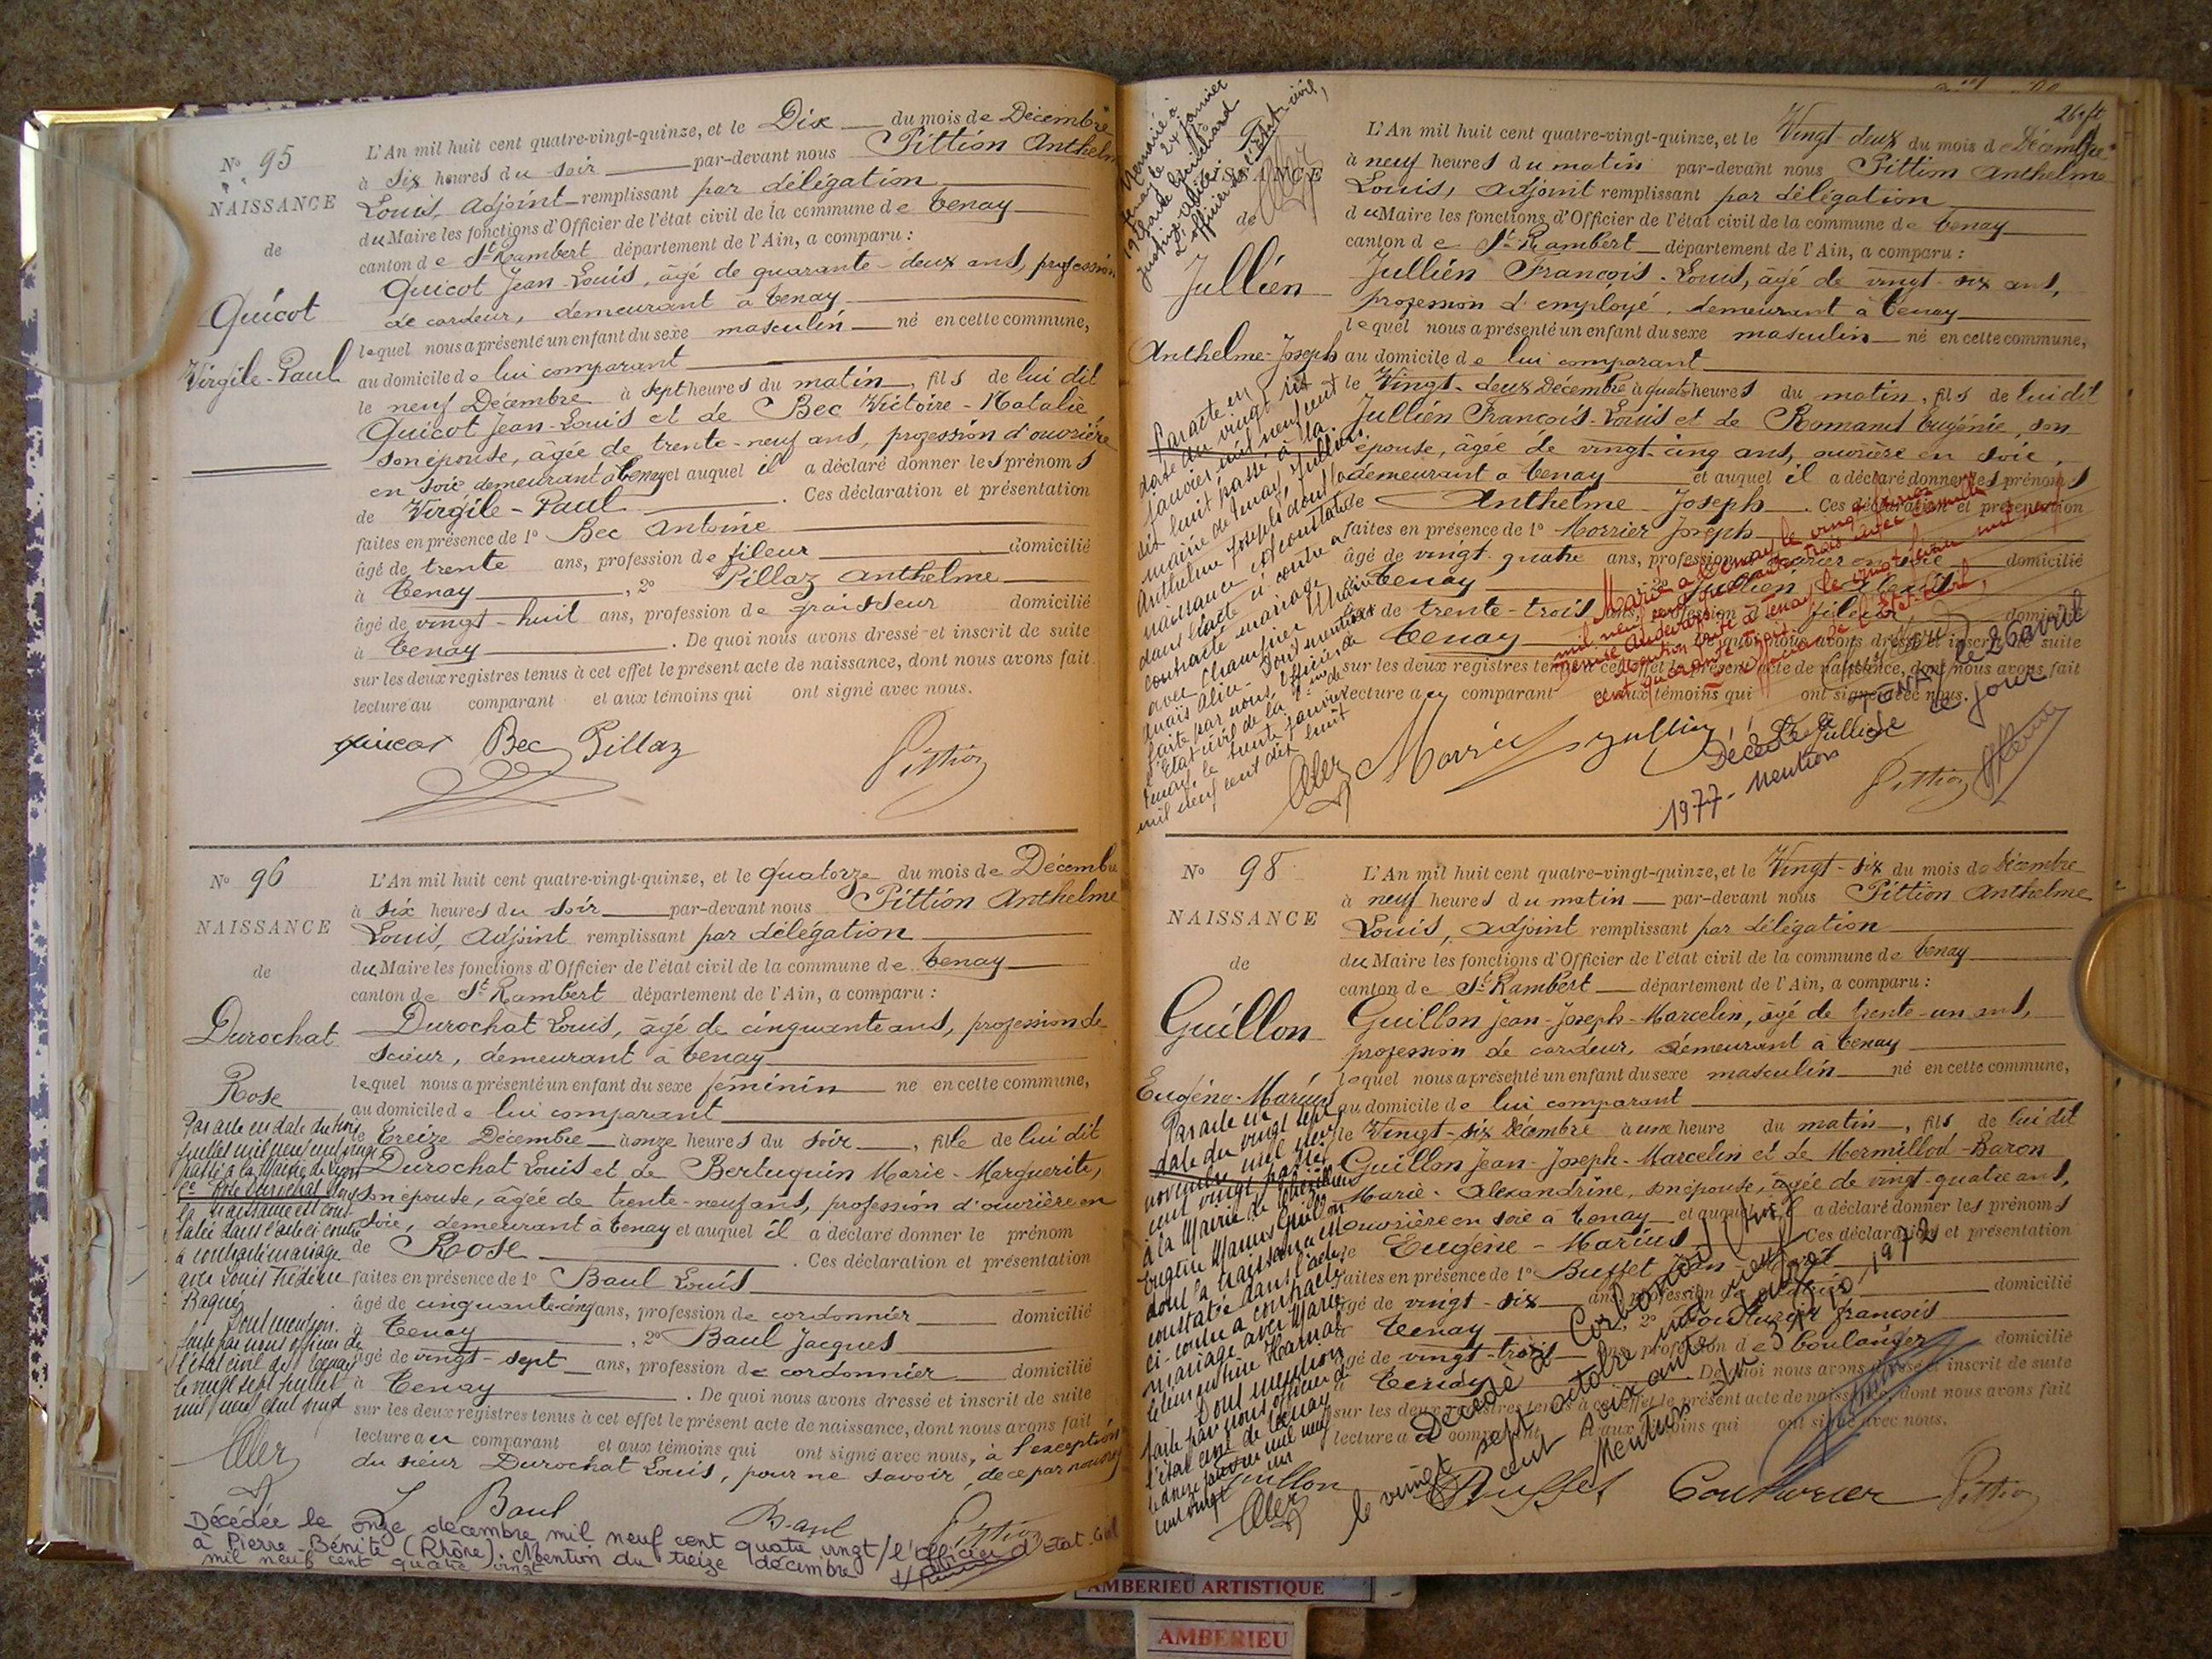 N° 95
NAISSANCE
de
Quicot
Virgile-Paul
L'An mil huit cent quatre-vingt-quinze, et le Dix du mois de Décembre
à six heures du soir par-devant nous Pittion Anthelme
Louis, Adjoint remplissant par délégation
du Maire les fonctions d'Officier de l'état civil de la commune de Tenay
canton de St Rambert département de l'Ain, a comparu :
Quicot Jean-Louis, âgé de quarante-deux ans, profession
de cardeur, demeurant à Tenay
lequel nous a présenté un enfant du sexe masculin né en cette commune,
au domicile de lui comparant
le neuf Décembre à sept heures du matin, fils de lui dit
Quicot Jean-Louis et de Bec Victoire-Natalie
son épouse, âgée de trente-neuf ans, profession d'ouvrière
en soie demeurant à Tenay et auquel il a déclaré donner les prénoms
de Virgile-Paul. Ces déclaration et présentation
faites en présence de 1° Bec Antoine
âgé de trente ans, profession de fileur domicilié
à Tenay, 2° Pillaz Anthelme
âgé de vingt-huit ans, profession de graisseur domicilié
à Tenay. De quoi nous avons dressé et inscrit de suite
sur les deux registres tenus à cet effet le présent acte de naissance, dont nous avons fait
lecture au comparant et aux témoins qui ont signé avec nous.
Quicot Bec Pillaz Pittion
N° 96
NAISSANCE
de
Durochat
Rose
L'An mil huit cent quatre-vingt-quinze, et le quatorze du mois de Décembre
à six heures du soir par-devant nous Pittion Anthelme
Louis, Adjoint remplissant par délégation
du Maire les fonctions d'Officier de l'état civil de la commune de Tenay
canton de St Rambert département de l'Ain, a comparu :
Durochat Louis, âgé de cinquante ans, profession de
scieur, demeurant à Tenay
lequel nous a présenté un enfant du sexe féminin né en cette commune,
au domicile de lui comparant
le treize Décembre à onze heures du soir, fille de lui dit
Durochat Louis et de Bertuguin Marie-Marguerite,
son épouse, âgée de trente-neuf ans, profession d'ouvrière en
soie, demeurant à Tenay et auquel il a déclaré donner le prénom
de Rose. Ces déclaration et présentation
faites en présence de 1° Baul Louis
âgé de cinquante-cinq ans, profession de cordonnier domicilié
à Tenay, 2° Baul Jacques
âgé de vingt-sept ans, profession de cordonnier domicilié
à Tenay. De quoi nous avons dressé et inscrit de suite
sur les deux registres tenus à cet effet le présent acte de naissance, dont nous avons fait
lecture au comparant et aux témoins qui ont signé avec nous, à l'exception
du sieur Durochat Louis, pour ne savoir, de ce par nous
Baul Baul Pittion
Par acte en date du trois
juillet mil neuf cent vingt
passé à la Mairie de Lyon
Rose Durochat dont
la naissance est cons
tatée dans l'acte ci contre
a contracté mariage
avec Louis Frédéric
Baqué
Dont mention
faite par nous officier de
l'état civil de Tenay
le vingt sept juillet
mil neuf cent vingt
Décédée le onze décembre mil neuf cent quatre vingt / l'Officier d'Etat-Civil
à Pierre-Bénite (Rhône). Mention du treize décembre
mil neuf cent quatre vingt
NAISSANCE
de
Jullien
Anthelme-Joseph
L'An mil huit cent quatre-vingt-quinze, et le Vingt-deux du mois de Décembre
à neuf heures du matin par-devant nous Pittion Anthelme
Louis, adjoint remplissant par délégation
du Maire les fonctions d'Officier de l'état civil de la commune de Tenay
canton de St Rambert département de l'Ain, a comparu :
Jullien François-Louis, âgé de vingt-six ans,
profession d'employé, demeurant à Tenay
lequel nous a présenté un enfant du sexe masculin né en cette commune,
au domicile de lui comparant
le Vingt-deux Décembre à quatre heures du matin, fils de lui dit
Jullien François-Louis et de Romanet Eugénie, son
épouse, âgée de vingt-cinq ans, ouvrière en soie,
demeurant à Tenay et auquel il a déclaré donner les prénoms
de Anthelme-Joseph. Ces déclaration et présentation
faites en présence de 1° Morrier Joseph
âgé de vingt-quatre ans, profession d'ouvrier en soie domicilié
à Tenay 2° Jullien
âgé de trente-trois ans, profession de fileur domicilié
à Tenay De quoi nous avons dressé et inscrit de suite
sur les deux registres tenus à cet effet le présent acte de naissance, dont nous avons fait
lecture au comparant et aux témoins qui ont signé avec nous.
Par acte en
date du vingt six
janvier mil neuf cent
dix huit passé à la
mairie de Tenay, Jullien
Anthelme Joseph dont la
naissance est constatée
dans l'acte ci contre a
contracté mariage
avec
Dont mention
faite par nous, officier de
l'Etat civil de
Tenay, le trente janvier
mil neuf cent dix huit
Marié à Tenay le vingt
Décédé à
le 26 avril
1977 - Mention ce jour
Pittion
N° 98
NAISSANCE
de
Guillon
Eugène-Marius
L'An mil huit cent quatre-vingt-quinze, et le Vingt-six du mois de Décembre
à neuf heures du matin par-devant nous Pittion Anthelme
Louis, adjoint remplissant par délégation
du Maire les fonctions d'Officier de l'état civil de la commune de Tenay
canton de St Rambert département de l'Ain, a comparu :
Guillon Jean-Joseph-Marcelin, âgé de trente-un ans,
profession de cardeur, demeurant à Tenay
lequel nous a présenté un enfant du sexe masculin né en cette commune,
au domicile de lui comparant
le Vingt-six Décembre à une heure du matin, fils de lui dit
Guillon Jean-Joseph-Marcelin et de Mermillod-Baron
Marie-Alexandrine, son épouse, âgée de vingt-quatre ans,
ouvrière en soie à Tenay et auquel il a déclaré donner les prénoms
de Eugène-Marius Ces déclaration et présentation
faites en présence de 1° Buffet Jean
âgé de vingt-six ans, profession de domicilié
à Tenay, 2° Couturier François
âgé de vingt-trois ans, profession de boulanger domicilié
à Tenay De quoi nous avons dressé et inscrit de suite
sur les deux registres tenus à cet effet le présent acte de naissance, dont nous avons fait
lecture au comparant et aux témoins qui ont signé avec nous.
Par acte en
date du vingt sept
novembre mil neuf
cent vingt passé
à la Mairie de
Eugène Marius Guillon
dont la naissance est
constatée dans l'acte
ci-contre a contracté
mariage avec Marie
Dont mention
faite par nous officier de
l'état civil de Tenay
janvier mil neuf
cent vingt un
Décédé à Corbonod (Ain)
le vingt sept octobre mil neuf
cent soixante douze
Mention du 31/10/1972
Guillon Buffet Couturier Pittion
AMBERIEU ARTISTIQUE
AMBERIEU